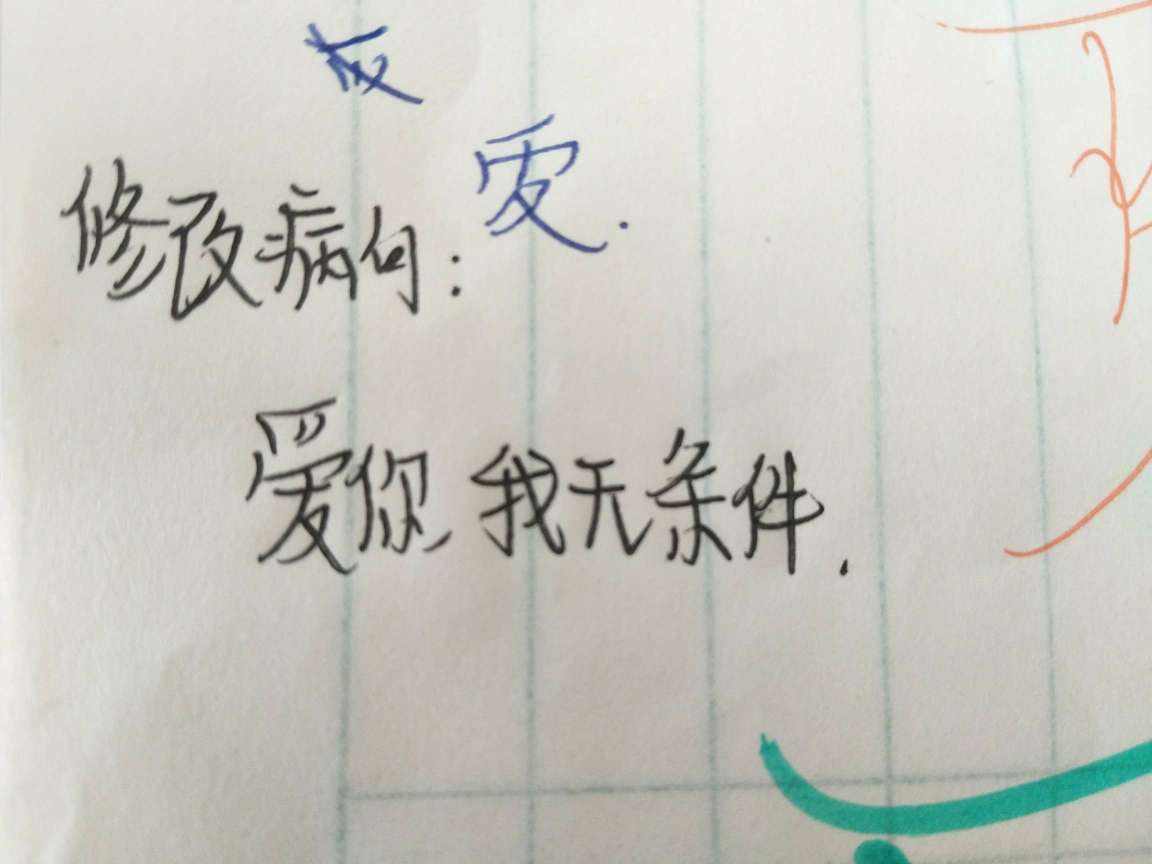 爱.
修改病句:
爱你 我无条件.